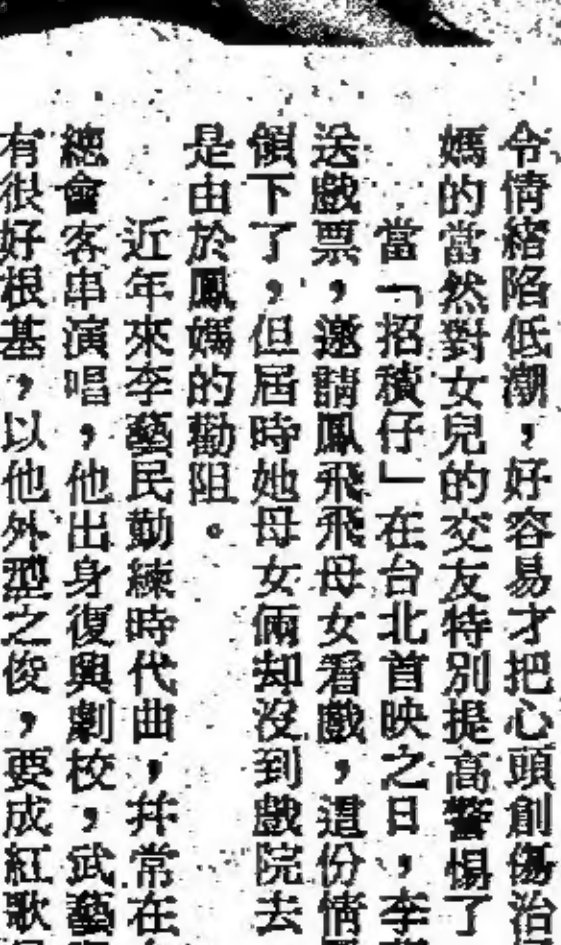 令情緒陷低潮，好容易才把心頭創傷治
媽的當然對女兒的交友特別提高警惕了
當「招積仔」在台北首映之日，李
送戲票，邀請鳳飛飛母女看戲，這份情
領下了，但屆時她母女倆却沒到戲院去
是由於鳳媽的勸阻。
近年來李藝民勤練時代曲，并常在
總會客串演唱，他出身復興劇校，武藝
有很好根基，以他外型之俊，要成紅歌